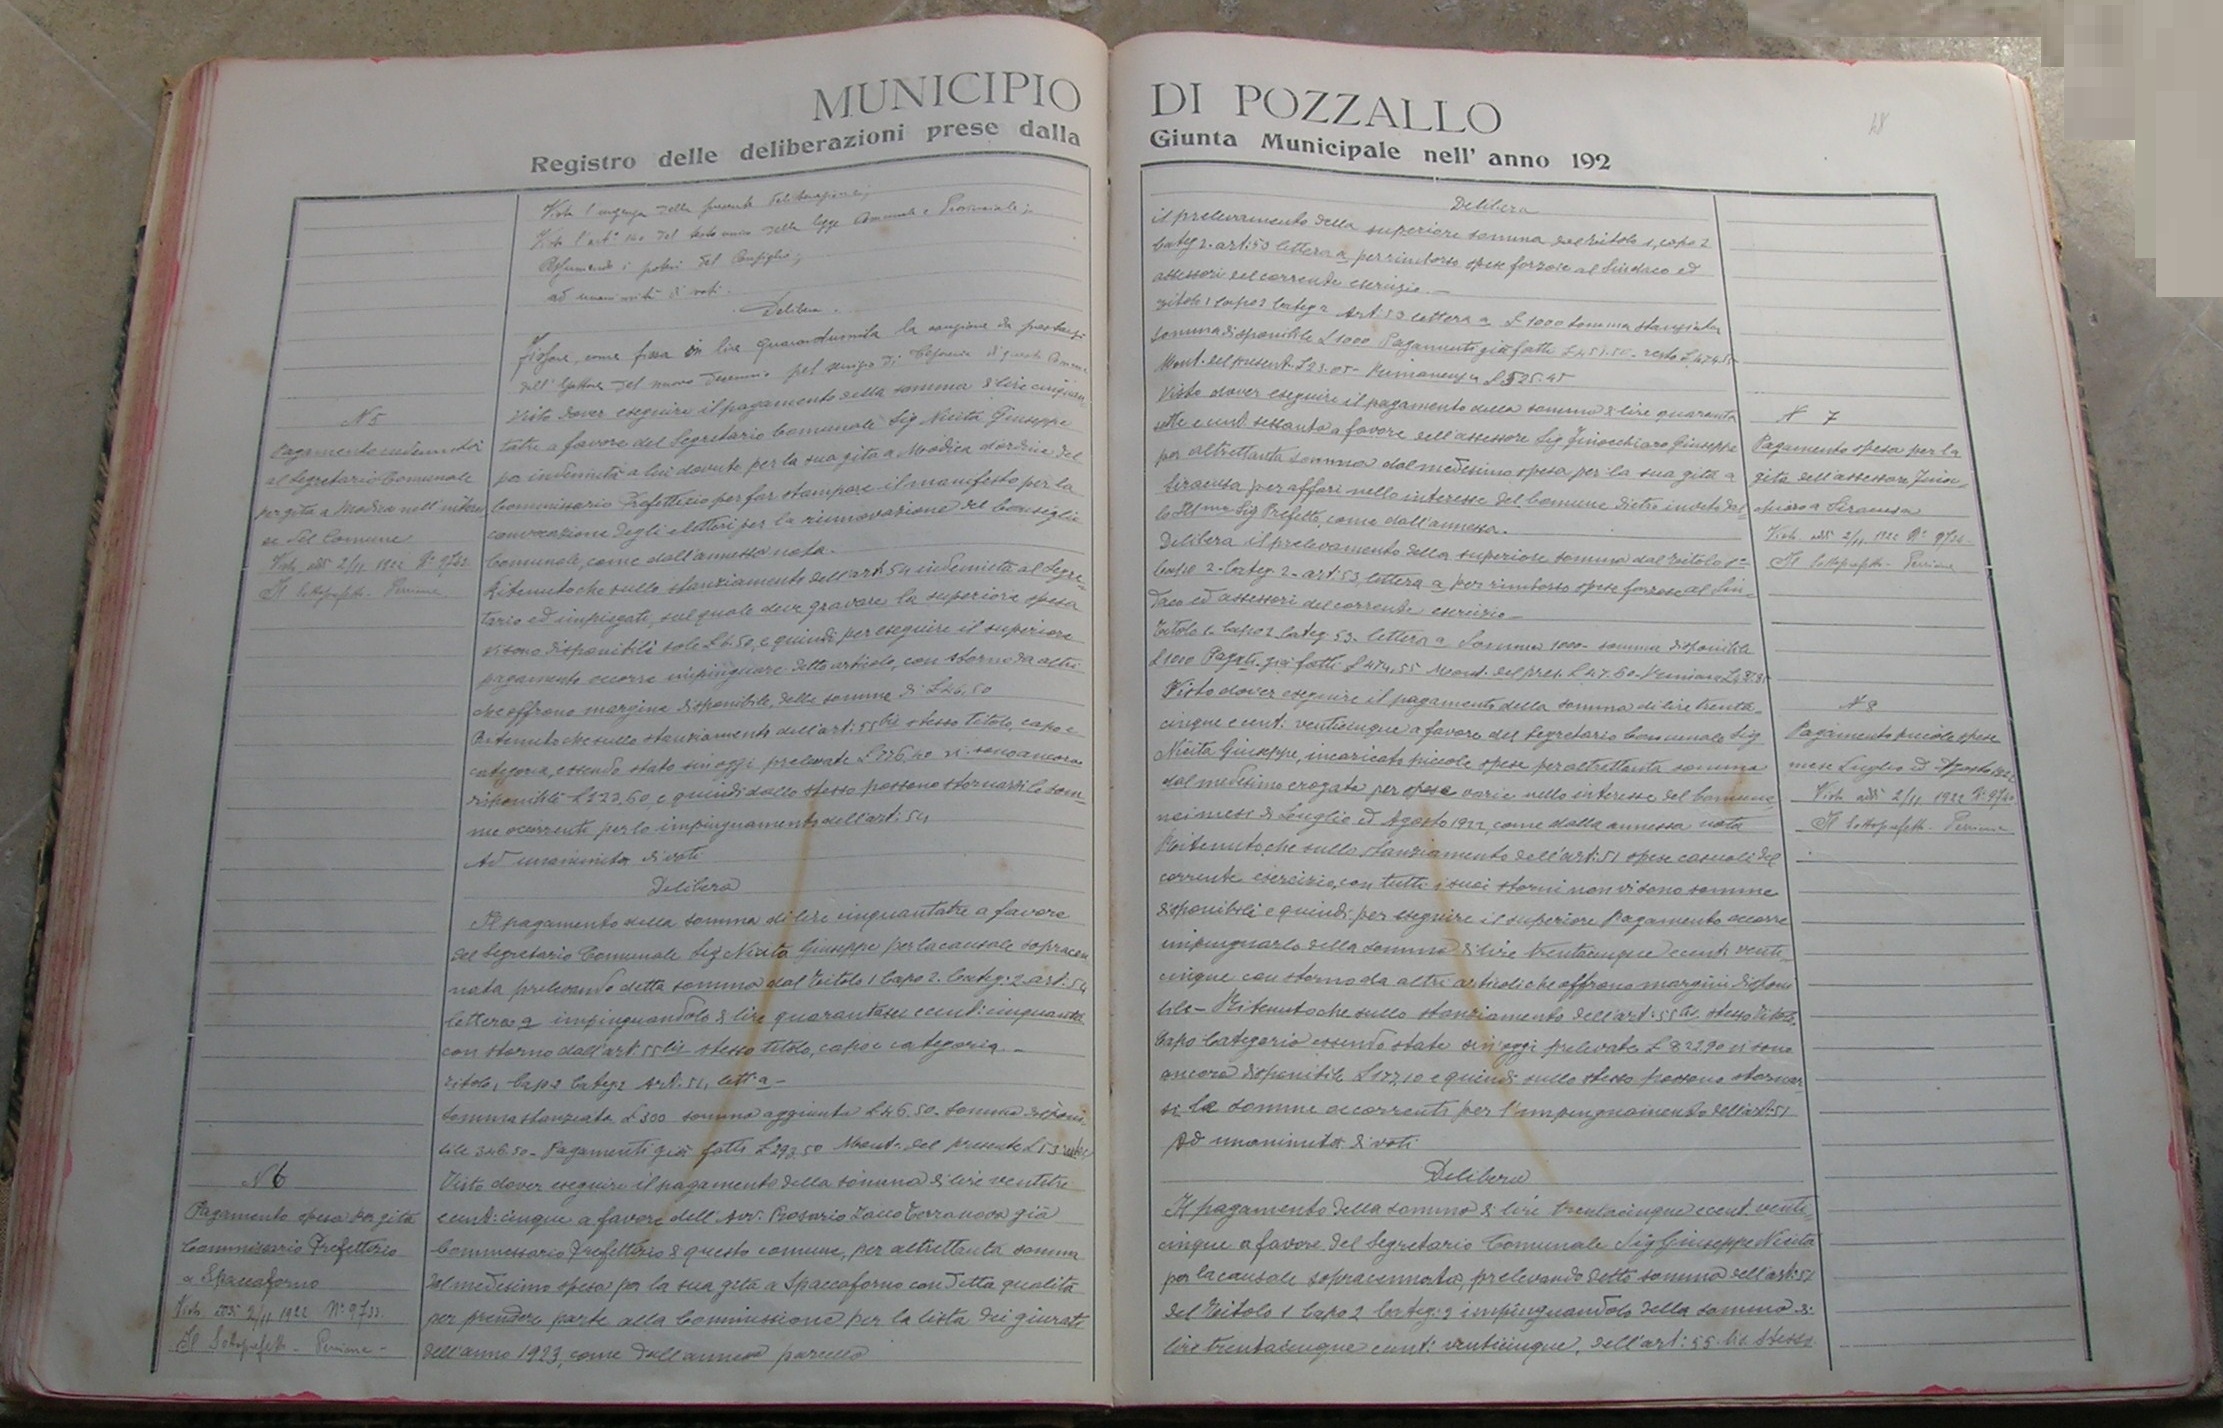 MUNICIPIO
Registro delle deliberazioni prese dalla
Vista l'urgenza della presente deliberazione;
Visto l'art. 140 del testo unico della legge Comunale e Provinciale;
Assumendo i poteri del Consiglio;
ad unanimità di voti.
Delibera.
fissare, come fissa in lire quarantamila la cauzione da
dell' del nuovo pel servizio di di questo Comune
N 5
Pagamento indennità
al Segretario Comunale
per gita a Modica nell'interes
se del Comune
Visto addì 2/11 1922 N° 9732
Il Sottoprefetto - Perrione
Visto dover eseguire il pagamento della somma di lire cinquan
tatre a favore del Segretario Comunale Sig Nicita Giuseppe
pa indennità a lui dovute per la sua gita a Modica d'ordine del
Commissario Prefettizio per far stampare il manifesto per la
convocazione degli elettori per la rinnovazione del Consiglio
Comunale, come dall'annessa nota.
Ritenuto che sullo stanziamento dell'art. 54 indennità al Segre-
tario ed impiegati, sul quale deve gravare la superiore spesa
vi sono disponibili sole £ 6.50, e quindi per eseguire il superiore
pagamento occorre impinguare detto articolo, con storno da altri
che offrono margine disponibile, delle somme di £ 46,50
Ritenuto che sullo stanziamento dell'art: 55 bis stesso titolo, capo e
categoria, essendo state sin oggi prelevate £ 776,40 vi sono ancora
disponibili £ 223,60 e quindi dallo stesso possono stornarsi le som-
me occorrenti per lo impinguamento dell'art: 54
Ad unanimità di voti
Delibera
Il pagamento della somma di lire cinquantatre a favore
del Segretario Comunale Sig Nicita Giuseppe per la causale sopracen
nata prelevando detta somma dal Titolo 1 Capo 2. Categ: 2 art: 54
lettera a impinguandola di lire quarantasei cent: cinquanta
con storno dall'art: 55 bis stesso titolo, capo e categoria. -
Titolo 1 Capo 2 Categ 2 Art: 51, lett: a -
Somma stanziata £ 300 somma aggiunta £ 46.50. Somma disponi-
bile 346.50 - Pagamenti già fatti £ 293,50 Mont. del presente £ 53
N 6
Pagamento spesa per gita
Commissario Prefettizio
a Spaccaforno
Visto addì 2/11 1922 N° 9733
Il Sottoprefetto - Perrione -
Visto dover eseguire il pagamento della somma di lire ventitre
e cent: cinque a favore dell'Avv: Rosario Iacco Terranova già
Commissario Prefettizio di questo comune, per altrettanta somma
dal medesimo spesa per la sua gita a Spaccaforno con detta qualità
per prendere parte alla Commissione per la lista dei giurati
dell'anno 1923, come dall'annessa parcella
DI POZZALLO
Giunta Municipale nell' anno 192
48
Delibera
il prelevamento della superiore somma dal Titolo 1, capo 2
Categ 2 - art: 53 lettera a per rimborso spese forzose al Sindaco ed
assessori del corrente esercizio. -
Titolo 1 Capo 2 Categ 2 Art: 53 lettera a £ 1000 somma stanziata
Somma disponibile £ 1000 Pagamenti già fatti £ 451.50 - resto £
Mont. del present. £ 23.05 - Rimanenza £ 525.45
N 7
Pagamento spesa per la
gita dell'assessore Finoc-
chiaro a Siracusa
Visto addì 2/11 1922 N° 9734
Il Sottoprefetto - Perrione
Visto dover eseguire il pagamento della somma di lire quaranta
sette e cent. sessanta a favore dell'assessore Sig Finocchiaro Giuseppe
per altrettanta somma dal medesimo spesa per la sua gita a
Siracusa per affari nello interesse del Comune dietro invito del-
lo Ill.mo Sig Prefetto, come dall'annessa.
Delibera il prelevamento della superiore somma dal Titolo 1°
Capo 2 - Categ. 2 - art: 53, lettera a per rimborso spese forzose al Sin-
daco ed assessori del corrente esercizio -
Titolo 1 - Capo 2 Categ: 53 - lettera a Somma 1000 - somma disponibile
£ 1000 Pagati già fatti £ 474,55 Mont. del pres. £ 47.60 -
N 8
Pagamento piccole spese
mese Luglio ed Agosto 1922
Visto addì 2/11 1922 N° 9740
Il Sottoprefetto - Perrione
Visto dover eseguire il pagamento della somma di lire trenta-
cinque e cent: venticinque a favore del Segretario Comunale Sig
Nicita Giuseppe, incaricato piccole spese per altrettanta somma
dal medesimo erogata per spese varie nello interesse del Comune
nei mesi di Luglio ed Agosto 1922, come dalla annessa nota
Ritenuto che sullo stanziamento dell'art: 51 spese casuali del
corrente esercizio, con tutti i suoi storni non vi sono somme
disponibili e quindi per eseguire il superiore pagamento occorre
impinguarlo della somma di lire trentacinque e cent: venti-
cinque con storno da altri articoli che offrono margini disponi
bile - Ritenuto che sullo stanziamento dell'art: 55 bis, stesso titolo
Capo Categoria essendo state sin'oggi prelevate £ 822,90 vi sono
ancora disponibile £ 177,10 e quindi sullo stesso possono stornar
si le somme occorrenti per l'impinguamento dell'art: 51
Ad unanimità di voti
Delibera
Il pagamento della somma di lire trentacinque e cent. venti-
cinque a favore del Segretario Comunale Sig Giuseppe Nicita
per la causale sopracennata, prelevando detta somma dell'art: 51
del Titolo 1 Capo 2 Categ: 2 impinguandolo della somma di
lire trentacinque cent: venticinque, dell'art: 55 bis stesso